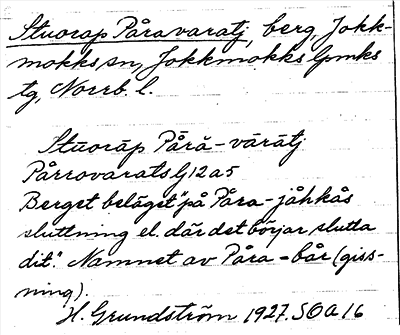 Stuorap Påravaratj, berg, Jokk-
mokks sn, Jokkmokks lpmks
tg, Norrb. l.
Stūorāp Pårā-vārātj
Pårrovarats G12a5
Berget beläget "på Påra-jåhkås
sluttning el. där det börjar slutta
dit". Namnet av Påra-bår (giss-
ning).
H. Grundström 1927. SOA 16